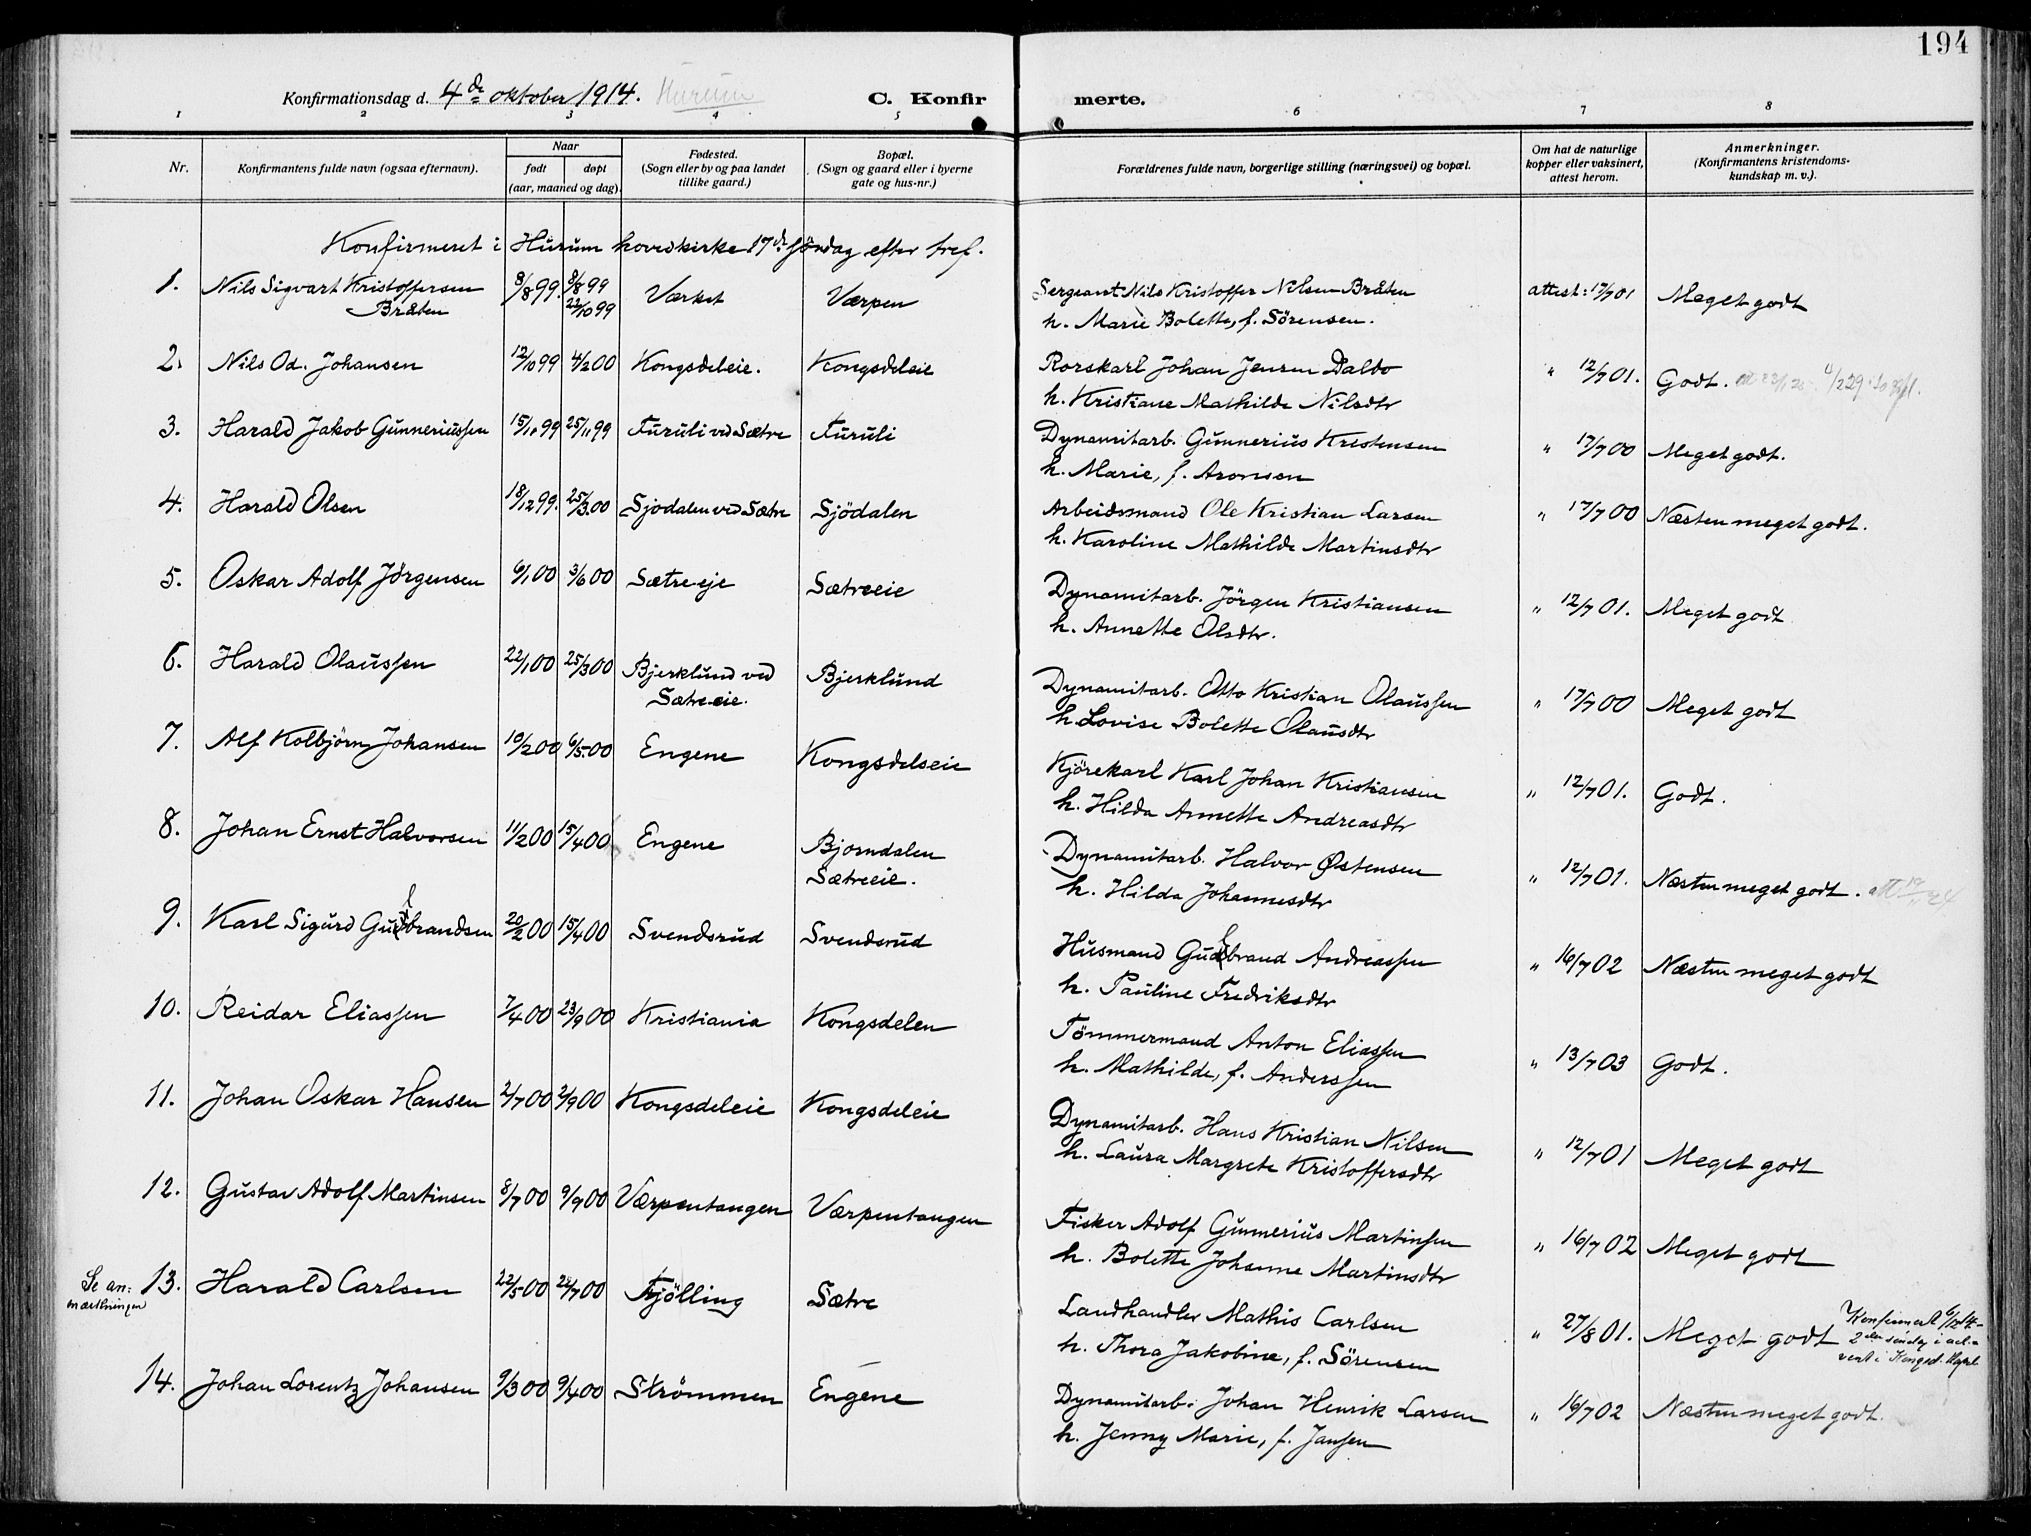 194
Konfirmationsdag d. 4de oktober 1914. Hurum
C. Konfirmerte.
1 2 3 4 5 6 7 8
Nr. Konfirmantens fulde navn (ogsaa efternavn). Naar født døpt (aar, maaned og dag) Fødested. (Sogn eller by og paa landet tillike gaard.) Bopæl. (Sogn og gaard eller i byerne gate og hus-nr.) Forældrenes fulde navn, borgerlige stilling (næringsvei) og bopæl. Om hat de naturlige kopper eller vaksinert, attest herom. Anmerkninger. (Konfirmantens kristendomskundskap m. v.).
Konfirmeret i Hurum hovedkirke 17de söndag efter tref.
1. Nils Sigvart Kristoffersen Bråten 8/8 99. 8/8 99 22/10 99 Værket Værpen Sergeant Nils Kristoffer Nilsen Bråten attest: 17/7 01 Meget godt
h. Marie Bolette, f. Sörensen.
2. Nils Od. Johansen 12/10 99 4/2 00 Kongsdeleie. Kongsdeleie Rorskarl Johan Jensen Dalbo " 12/7 01. Godt.
h. Kristiane Mathilde Nilsdtr
3. Harald Jakob Gunneriussen 15/10 99 25/11 99 Furuli ved Sætre Furuli Dynamitarb. Gunnerius Kristensen " 17/7 00 Meget godt.
h. Marie, f. Aronsen
4. Harald Olsen 18/12 99. 25/3 00 Sjödalen ved Sætre Sjödalen Arbeidsmand Ole Kristian Larsen " 17/7 00 Næsten meget godt.
h. Karoline Mathilde Martinsdtr
5. Oskar Adolf Jörgensen 6/1 00 3/6 00 Sætreeje Sætreeie Dynamitarb. Jörgen Kristiansen " 12/7 01. Meget godt
h. Annette Olsdtr.
6. Harald Olaussen 22/1 00 25/3 00 Bjerklund ved Sætreeie. Bjerklund Dynamitarb. Otto Kristian Olaussen " 17/7 00 Meget godt
h. Lovise Bolette Olausdtr
7. Alf Kolbjörn Johansen 10/2 00 6/5 00 Engene Kongsdelseie Kjörekarl Karl Johan Kristiansen " 12/7 01. Godt.
h. Hilda Annette Andreasdtr
8. Johan Ernst Halvorsen 11/2 00 15/4 00 Engene Bjorndalen Sætreeie. Dynamitarb. Halvor Østensen " 12/7 01. Næsten meget godt.
h. Hilda Johannesdtr
9. Karl Sigurd Gulbrandsen 20/2 00 15/4 00 Svendsrud Svendsrud Husmand Gulbrand Andreassen " 16/7 02 Næsten meget godt
h. Pauline Fredriksdtr
10. Reidar Eliassen 7/4 00 23/9 00 Kristiania Kongsdelen Tömmermand Anton Eliassen " 13/7 03 Godt.
h. Mathilde, f. Anderssen
11. Johan Oskar Hansen 2/7 00 2/9 00 Kongsdeleie Kongsdeleie Dynamitarb. Hans Kristian Nilsen " 12/7 01 Meget godt
h. Laura Margrete Kristoffersdtr
12. Gustav Adolf Martinsen 8/7 00 9/9 00 Værpentangen Værpentangen Fisker Adolf Gunnerius Martinsen " 16/7 02 Meget godt
h. Bolette Johanne Martinsdtr
Se anmærkningen 13. Harald Carlsen 22/5 00 22/7 00 Fjölling Sætre Landhandler Mathis Carlsen " 27/8 01. Meget godt Konfirmert 6/12 14 2den söndag i advent i Kongsd. Kapel
h. Thora Jakobine, f. Sörensen
14. Johan Lorentz Johansen 9/3 00 9/4 00 Strömmen Engene Dynamitarb. Johan Henrik Larsen " 16/7 02 Næsten meget godt.
h. Jenny Marie, f. Jansen